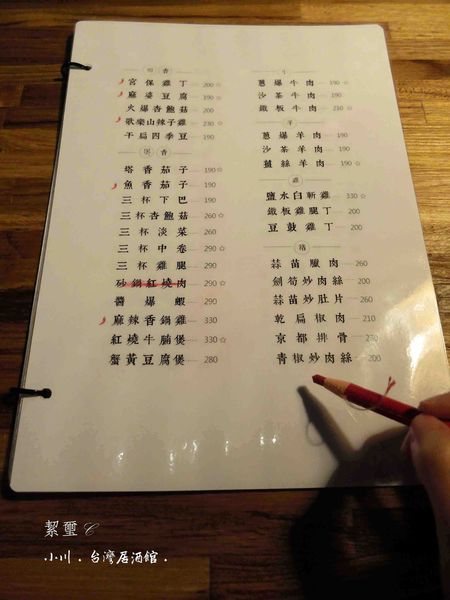 宮保雞丁 200 ☆
麻婆豆腐 190 ☆
火爆杏鮑菇 200
歌樂山辣子雞 230 ☆
干扁四季豆 190
煲香
塔香茄子 190 ☆
魚香茄子 190
三杯下巴 190
三杯杏鮑菇 260 ☆
三杯淡菜 260
三杯中卷 290 ☆
三杯雞腿 290
砂鍋紅燒肉 290 ☆
醬爆蝦 290
麻辣香鍋雞 330
紅燒牛腩煲 330 ☆
蟹黃豆腐煲 280
牛
蔥爆牛肉 190 ☆
沙茶牛肉 190
鐵板牛肉 210 ☆
羊
蔥爆羊肉 190
沙茶羊肉 190
薑絲羊肉 190 ☆
雞
鹽水白斬雞 330 ☆
鐵板雞腿丁 200
豆鼓雞丁 200
蒜苗臘肉 260
劍筍炒肉絲 200
蒜苗炒肚片 260
乾扁椒肉 210
京都排骨
青椒炒肉絲 200
絜璽 C
小川．台灣居酒館．